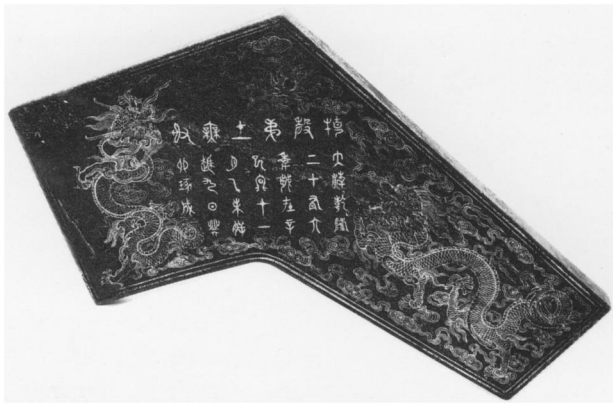 特磬第十一無射
大清乾隆
二十有六
年歲在辛
巳冬十一
月乙未朔
越九日癸
卯琢成